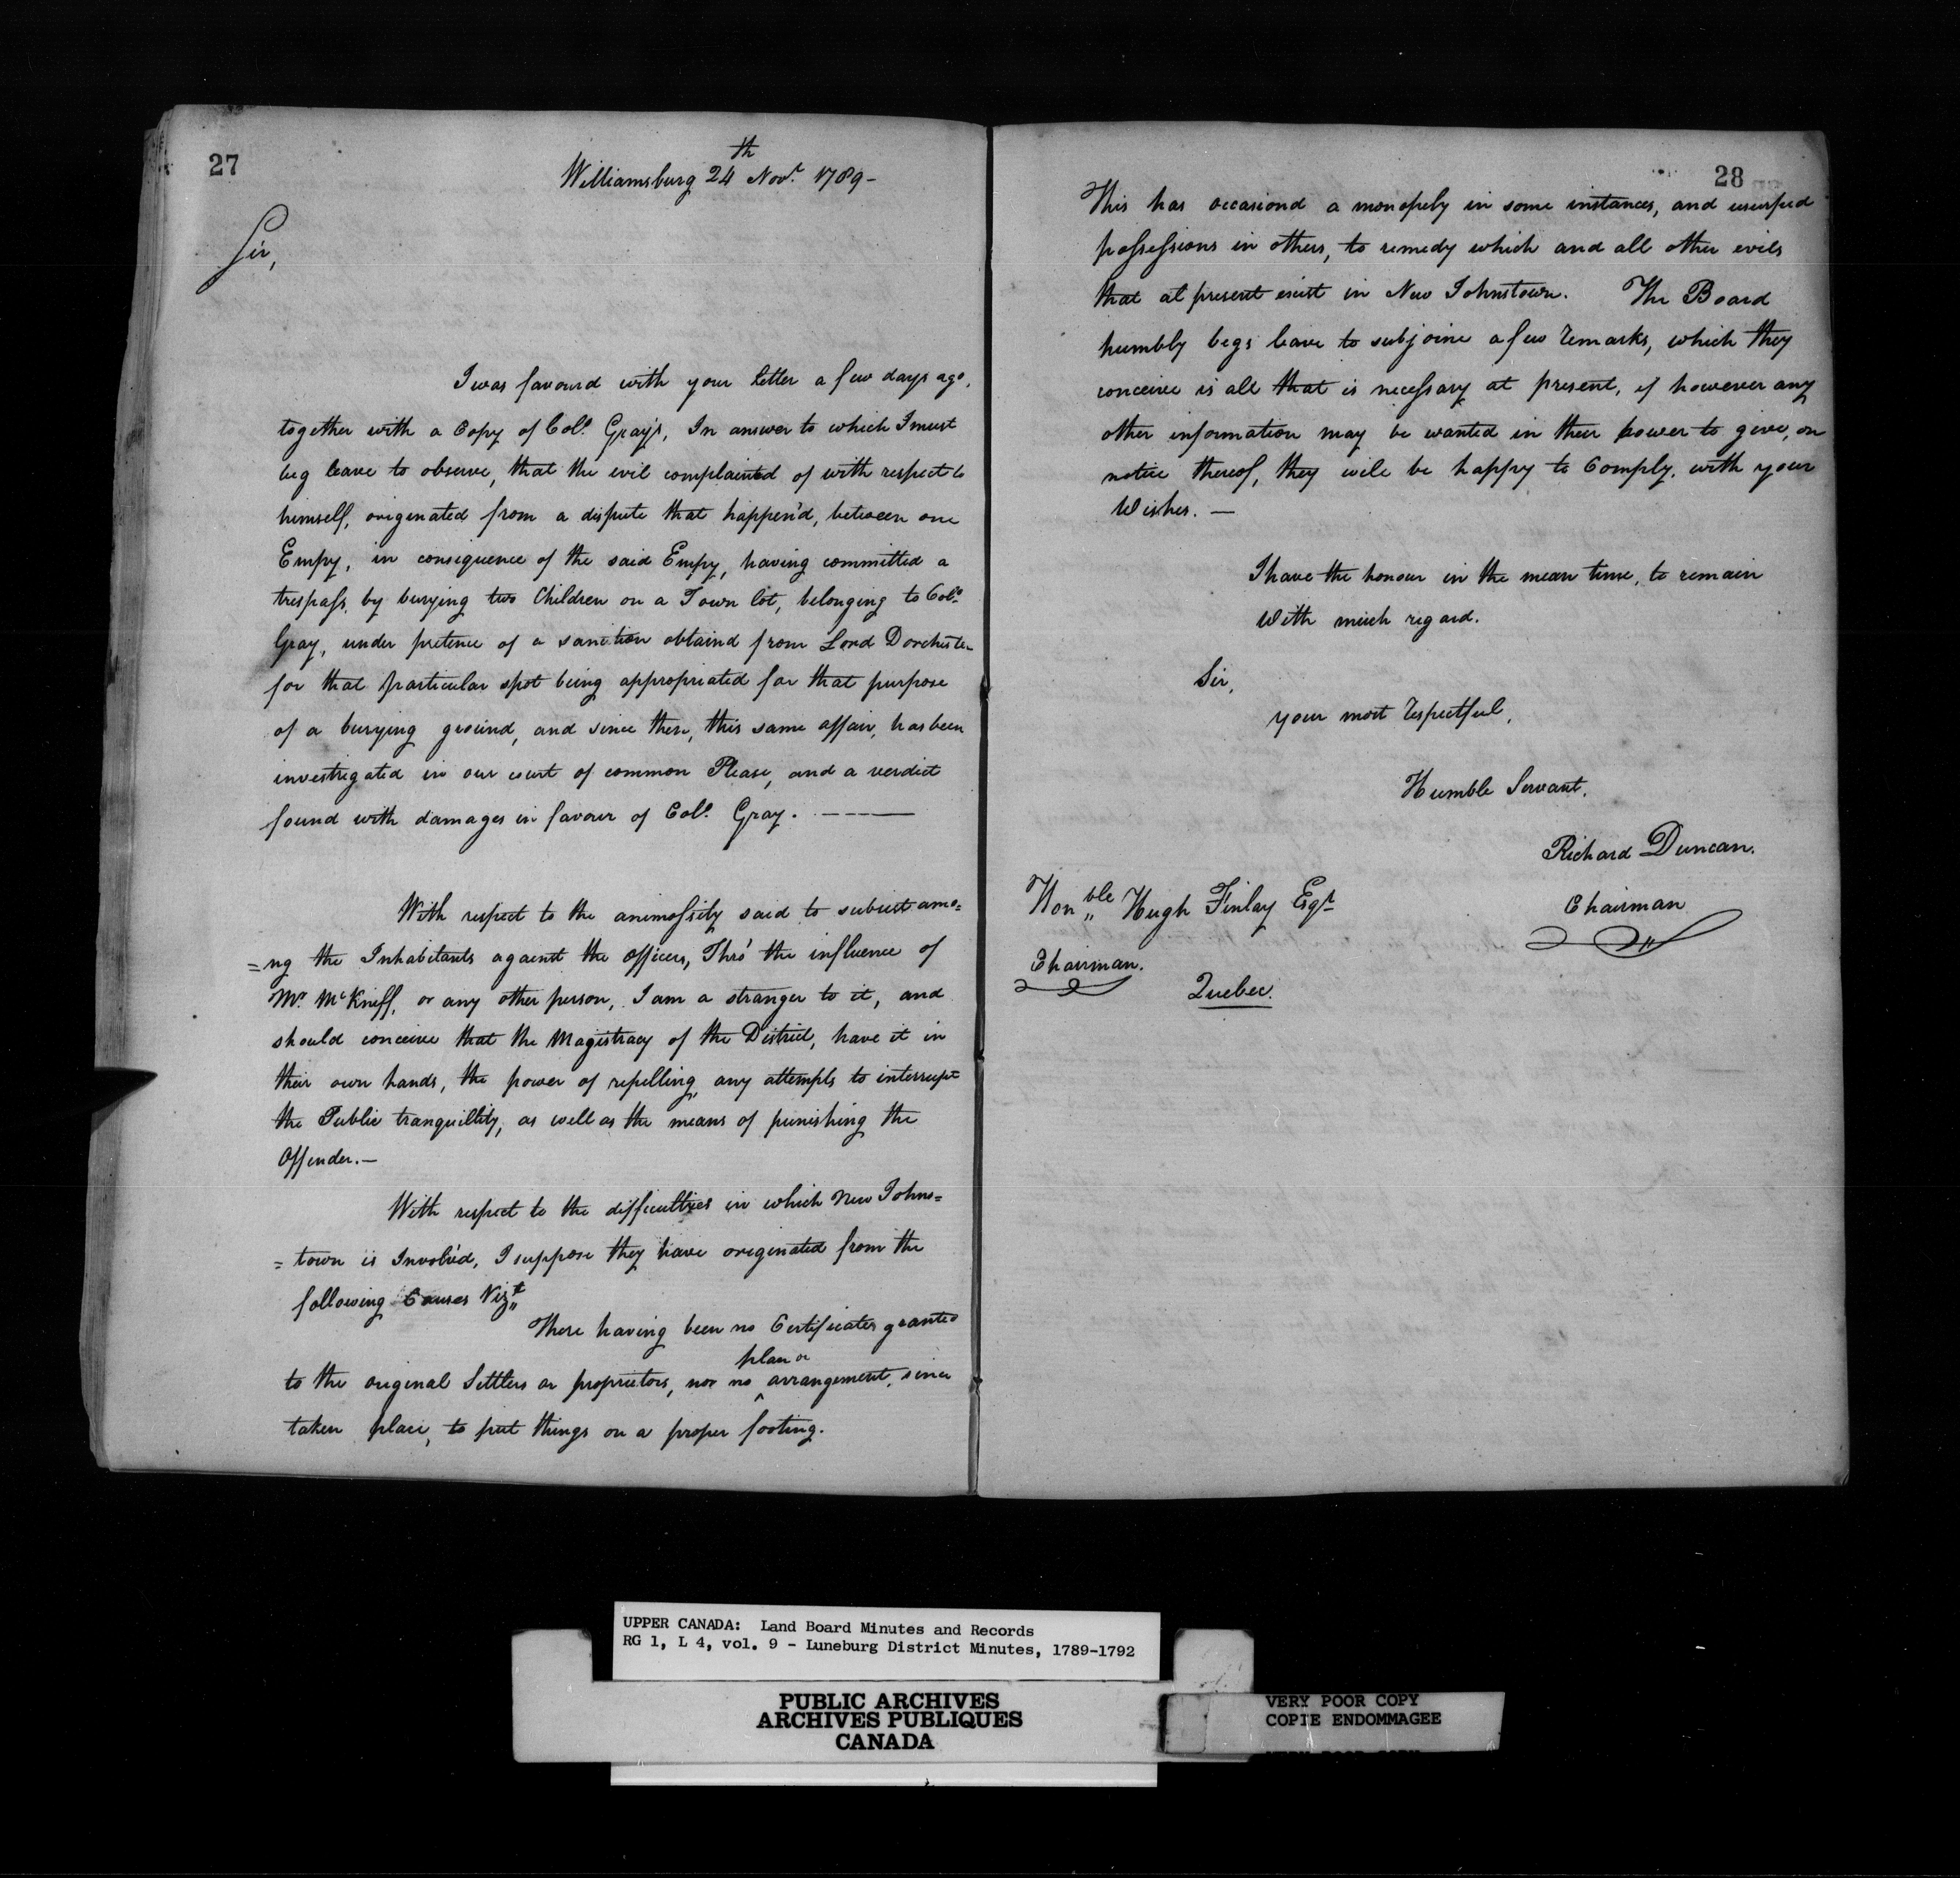 27
Williamsburg 24th Novr. 1789-
Sir,
I was favourd with your letter a few days ago,
together with a Copy of Colo. Gray's, In answer to which I must
beg leave to observe, that the evil complainted of with respect to
himself, originated from a dispute that happen'd, between one
Empy, in consequence of the said Empy, having committed a
trespass, by burying two Children on a Town lot, belonging to Colo.
Gray, under pretence of a sanction obtaind from Lord Dorchester
for that particular spot being appropriated for that purpose
of a burying ground, and since then, this same affair, has been
investigated in our court of common Please, and a verdict
found with damages in favour of Colo. Gray. -----
With respect to the animossity said to subsist amo=
=ng the Inhabitants against the Officers, Thro' the influence of
Mr. McKniff, or any other person, I am a stranger to it, and
should conceive that the Magistracy of the District, have it in
their own hands, the power of repelling, any attempts to interrupt
the Public tranquillity, as well as the means of punishing the
Offender.—
With respect to the difficulties in which New Johns=
=town is Involv'd, I suppose they have originated from the
following Causes Vizt
There having been no Certificates granted
to the original Settlers or proprietors, nor no plan or arrangement, since
taken place, to put things on a proper footing.
28
This has occasiond a monopely in some instances, and usurped
possessions in others, to remedy which and all other evils
that at present exist in New Johnstown. The Board
humbly begs leave to subjoine a few remarks, which they
conceive is all that is necessary at present, if however any
other information may be wanted in their power to give, on
notice thereof, they will be happy to Comply, with your
Wishes. —
I have the honour in the mean time, to remain
With much regard.
Sir,
your most respectful,
Humble Servant.
Richard Duncan.
Chairman
Honble Hugh Finlay Esqr
Chairman.
Quebec.
UPPER CANADA: Land Board Minutes and Records
RG 1, L 4, vol. 9 - Luneburg District Minutes, 1789-1792
PUBLIC ARCHIVES
ARCHIVES PUBLIQUES
CANADA
VERY POOR COPY
COPIE ENDOMMAGEE
VERY POOR COPY